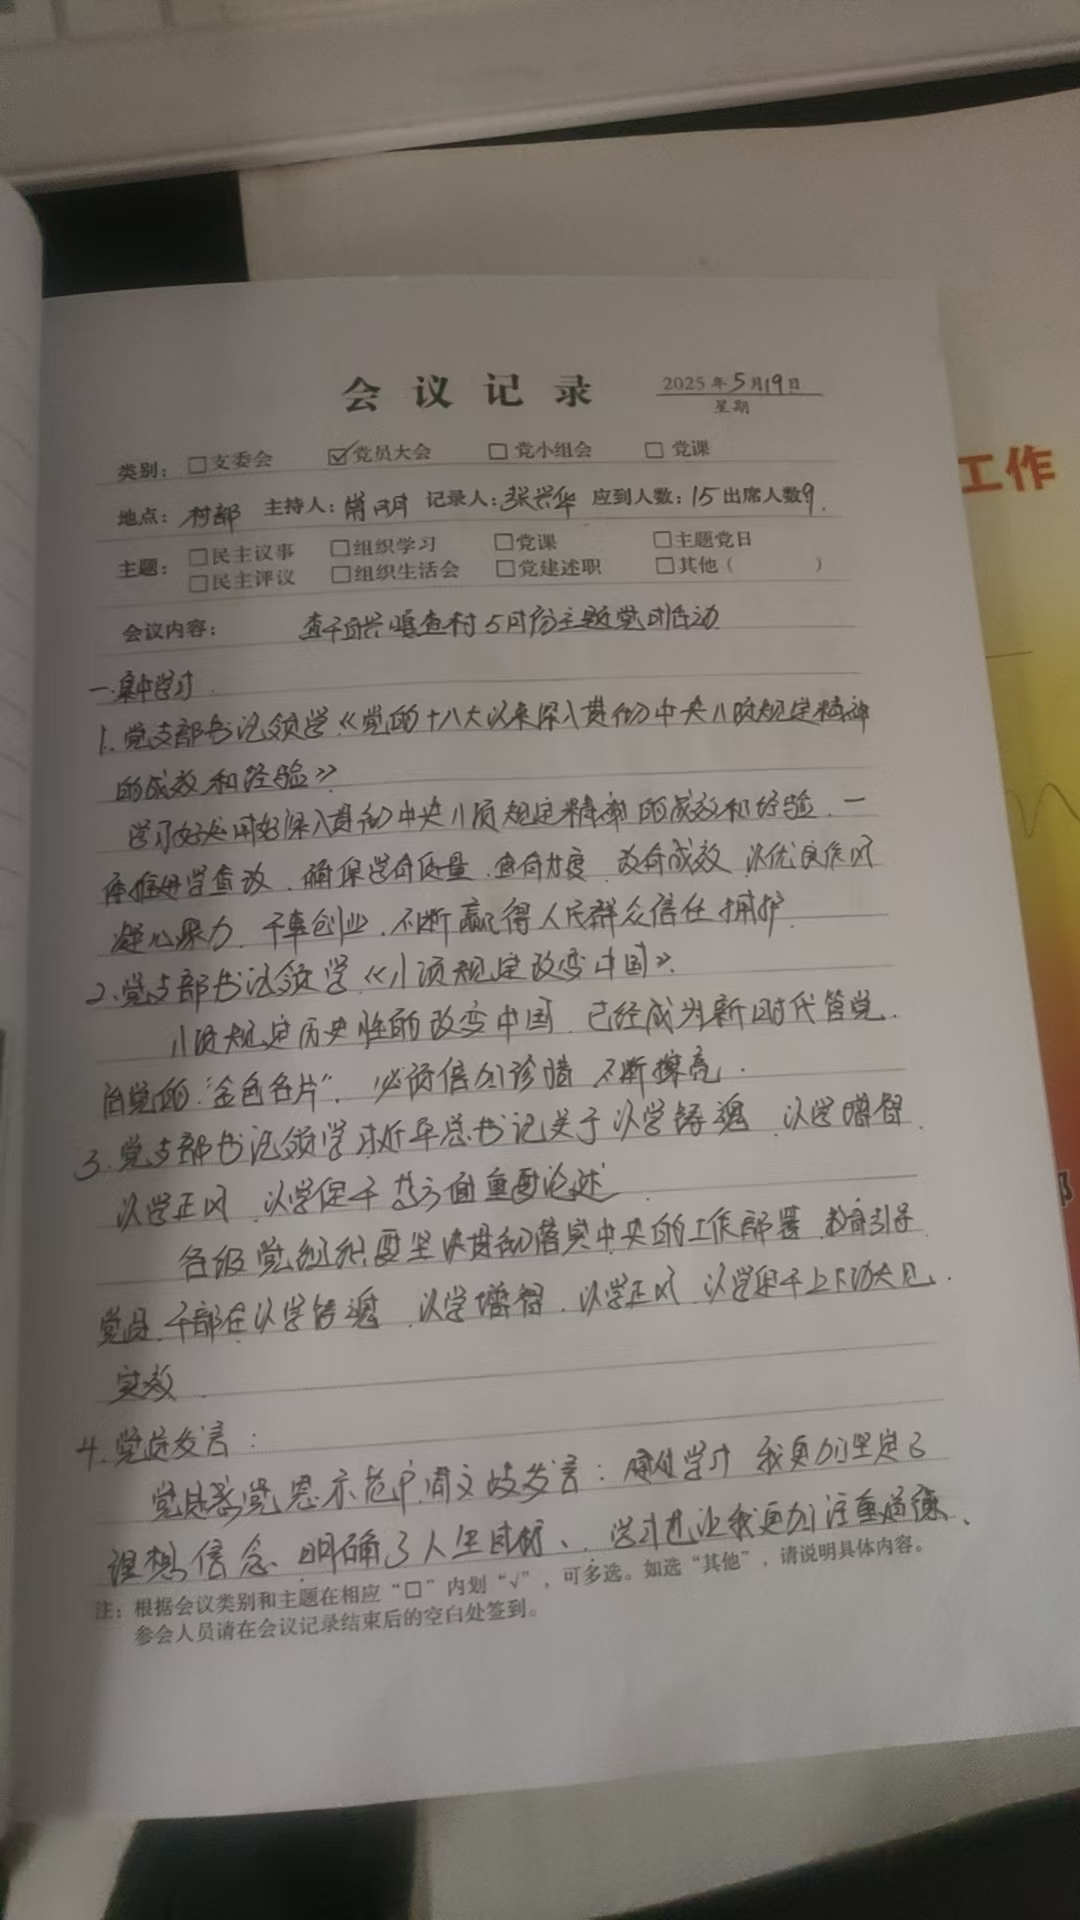 会议记录
2025年5月19日
星期
类别：□支委会 ☑党员大会 □党小组会 □党课
地点：村部 主持人： 记录人：张兴华 应到人数：15 出席人数9.
主题：□民主议事 □组织学习 □党课 □主题党日
□民主评议 □组织生活会 □党建述职 □其他（ ）
会议内容： 村5月份主题党日活动
一.集中学习.
1.党支部书记领学《党的十八大以来深入贯彻中央八项规定精神
的成效和经验》
学习好运用好深入贯彻中央八项规定精神的成效和经验.一
体推进学查改.确保学有质量.查有力度.改有成效.以优良作风
凝心聚力.干事创业.不断赢得人民群众信任拥护.
2.党支部书记领学《八项规定改变中国》.
八项规定历史性的改变中国.已经成为新时代管党.
治党的."金色名片".必须倍加珍惜.不断擦亮.
3.党支部书记领学习近平总书记关于以学铸魂.以学增智.
以学正风.以学促干 方面重要论述.
各级党组织要坚决贯彻落实中央的工作部署.教育引导
党员.干部在以学铸魂.以学增智.以学正风.以学促干上下功夫见.
实效.
4.党员发言：
党员 党恩示范户 发言： 学习 我更加坚定了
理想信念.明确了人生目标、.学习也让我更加注重道德、
注：根据会议类别和主题在相应“□”内划“√”，可多选。如选“其他”，请说明具体内容。
参会人员请在会议记录结束后的空白处签到。
工作